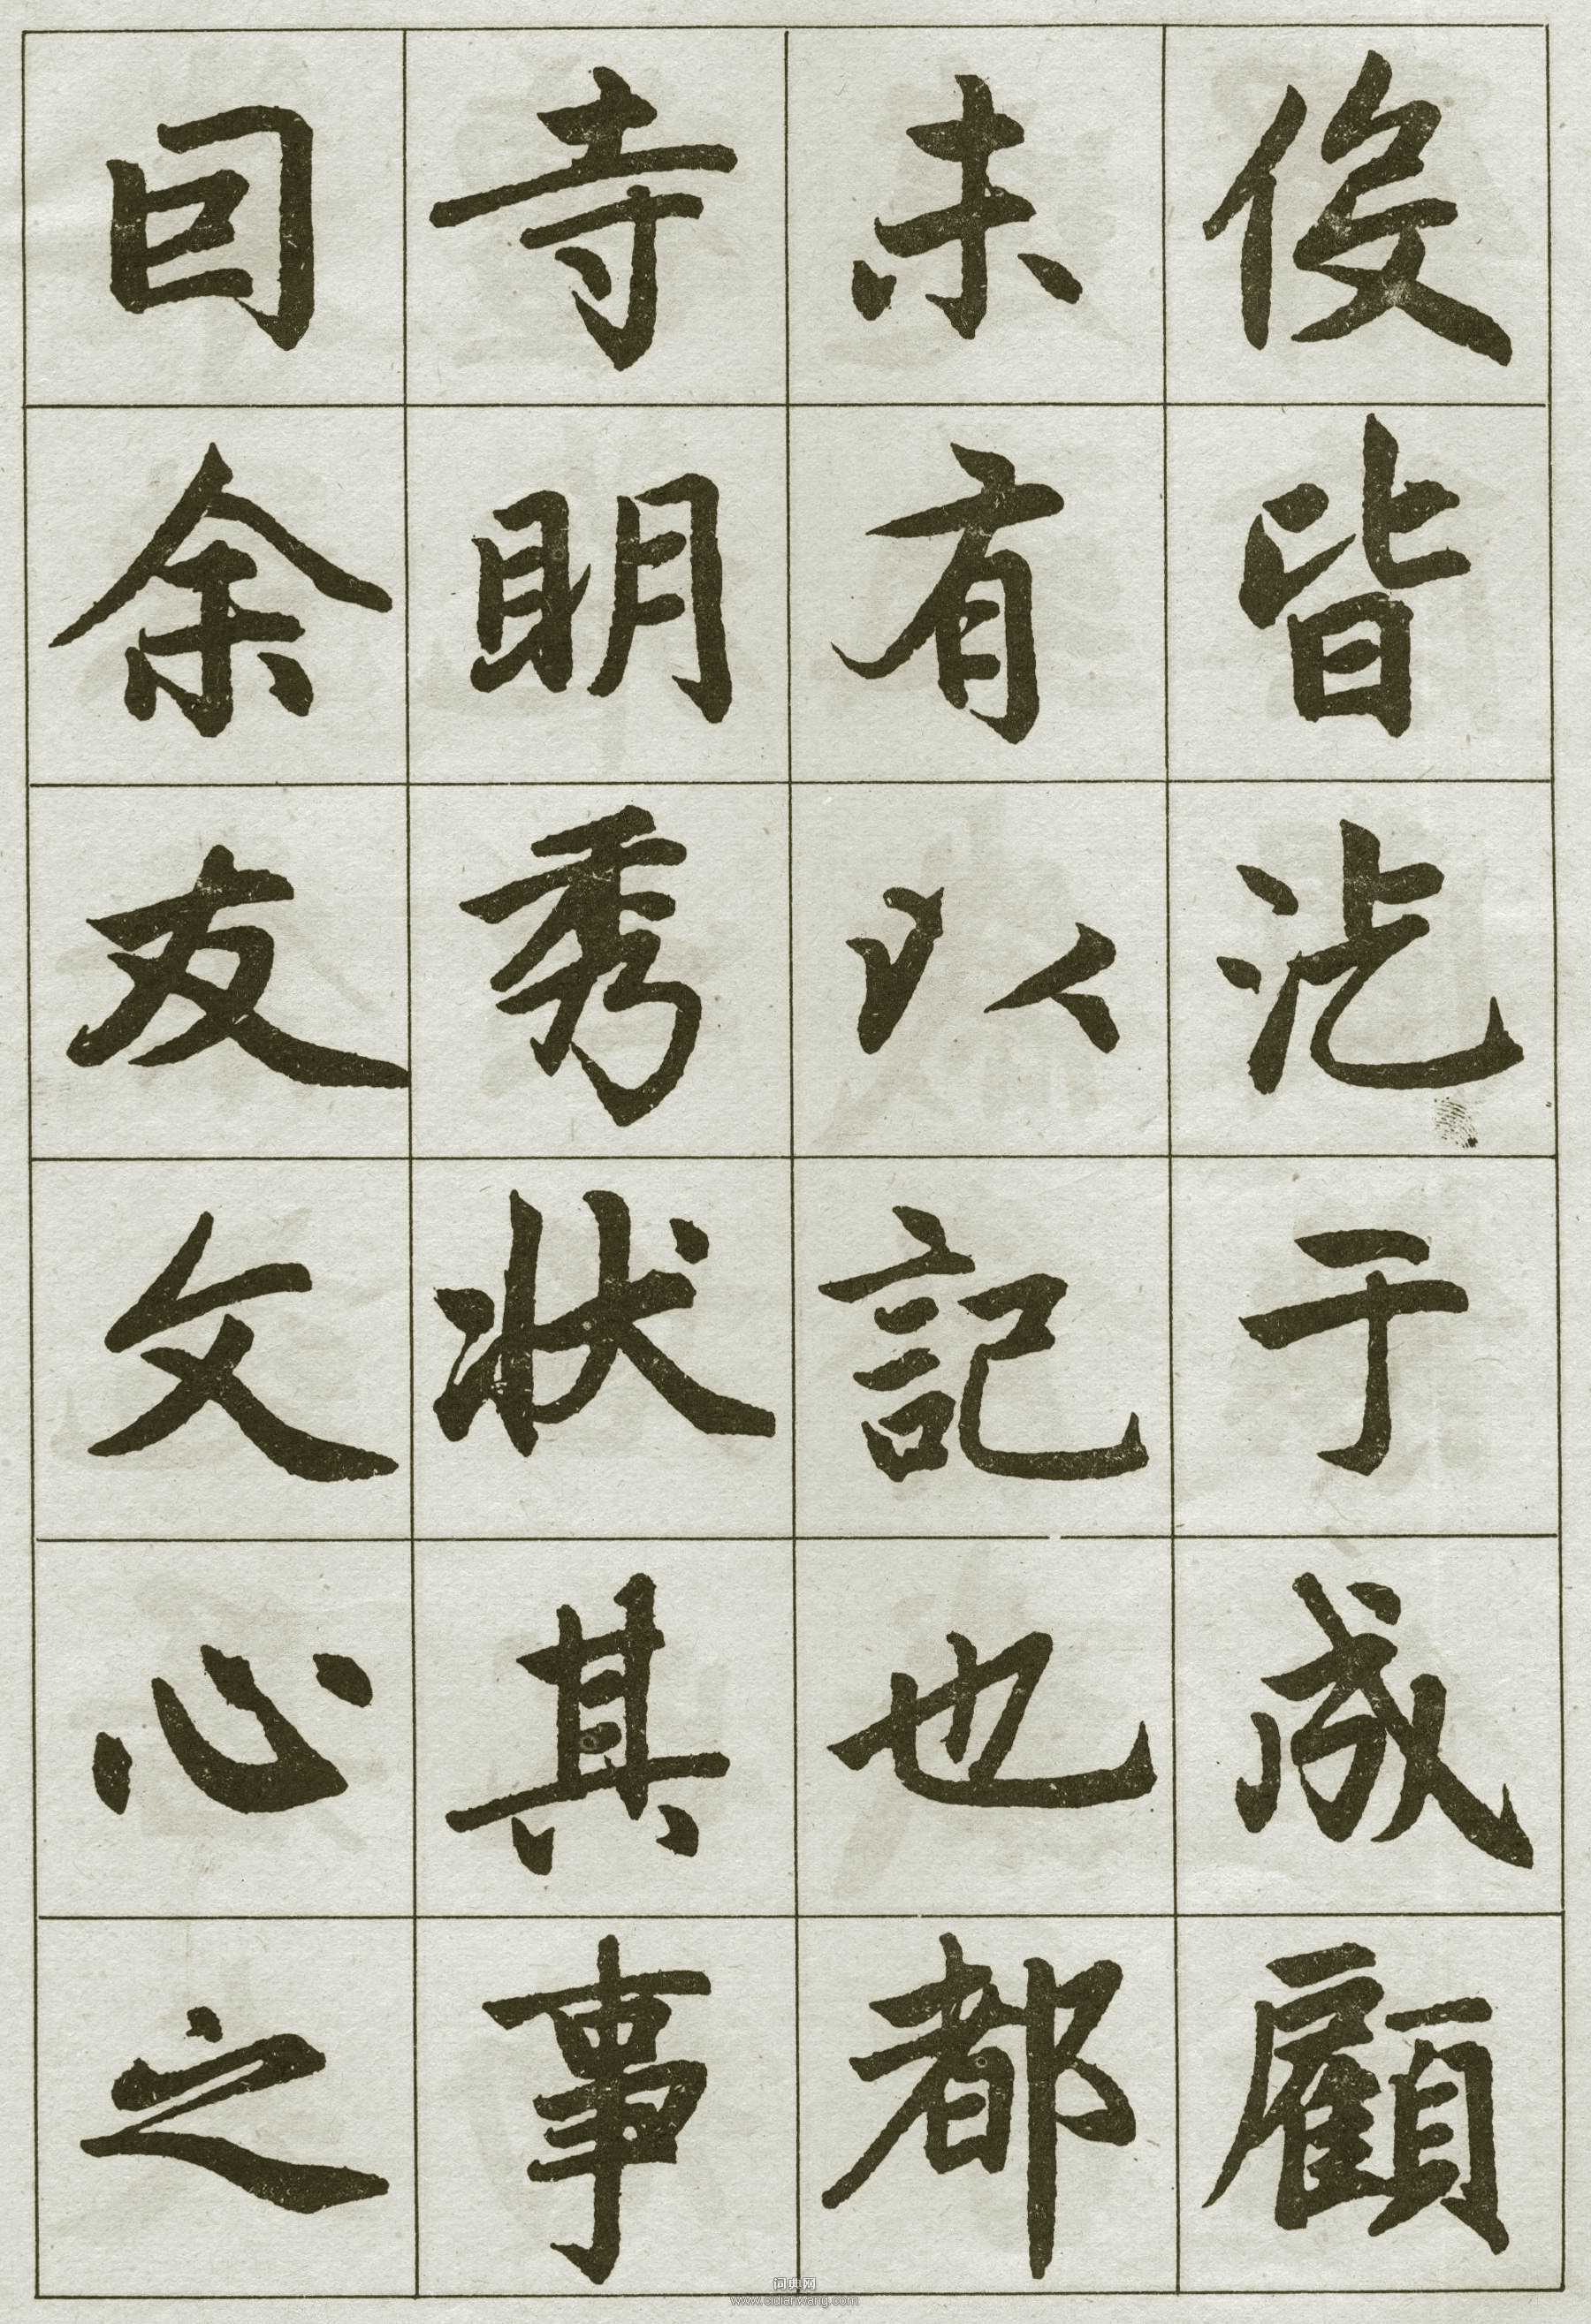 伇皆汔于成顧
未有以記也都
寺明秀狀其事
囙余友文心之
词典网
www.cidianwang.com